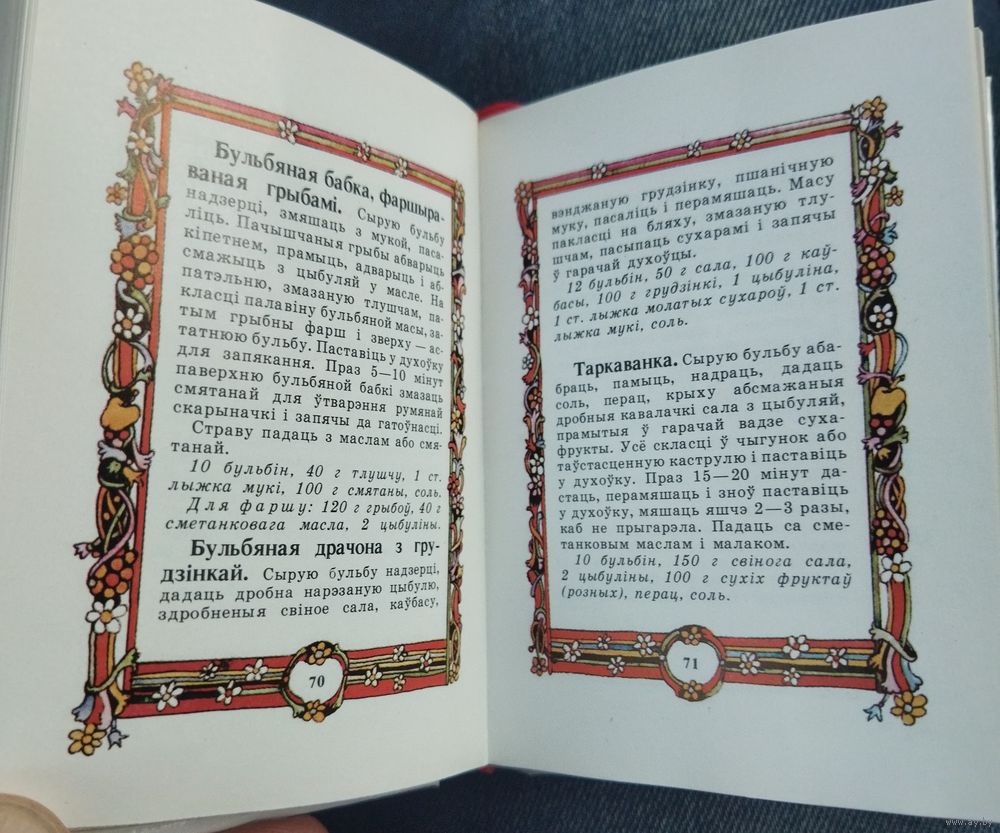 Бульбяная бабка, фаршыра-
ваная грыбамі. Сырую бульбу
надзерці, змяшаць з мукой, паса-
ліць. Пачышчаныя грыбы абварыць
кіпетнем, прамыць, адварыць і аб-
смажыць з цыбуляй у масле. На
патэльню, змазаную тлушчам, па-
класці палавіну бульбяной масы, за-
тым грыбны фарш і зверху — ас-
татнюю бульбу. Паставіць у духоўку
для запякання. Праз 5—10 мінут
паверхню бульбяной бабкі змазаць
смятанай для ўтварэння румянай
скарыначкі і запячы да гатоўнасці.
Страву падаць з маслам або смя-
танай.
10 бульбін, 40 г тлушчу, 1 ст.
лыжка мукі, 100 г смятаны, соль.
Для фаршу: 120 г грыбоў, 40 г
сметанковага масла, 2 цыбуліны.
Бульбяная драчона з гру-
дзінкай. Сырую бульбу надзерці,
дадаць дробна нарэзаную цыбулю,
здробненыя свіное сала, каўбасу,
70
вэнджаную грудзінку, пшанічную
муку, пасаліць і перамяшаць. Масу
пакласці на бляху, змазаную тлу-
шчам, пасыпаць сухарамі і запячы
ў гарачай духоўцы.
12 бульбін, 50 г сала, 100 г каў-
басы, 100 г грудзінкі, 1 цыбуліна,
1 ст. лыжка молатых сухароў, 1 ст.
лыжка мукі, соль.
Таркаванка. Сырую бульбу аба-
браць, памыць, надраць, дадаць
соль, перац, крыху абсмажаныя
дробныя кавалачкі сала з цыбуляй,
прамытыя ў гарачай вадзе суха-
фрукты. Усё скласці ў чыгунок або
таўстасценную каструлю і паставіць
у духоўку. Праз 15—20 мінут да-
стаць, перамяшаць і зноў паставіць
у духоўку, мяшаць яшчэ 2—3 разы,
каб не прыгарэла. Падаць са сме-
танковым маслам і малаком.
10 бульбін, 150 г свінога сала,
2 цыбуліны, 100 г сухіх фруктаў
(розных), перац, соль.
71
www.ay.by